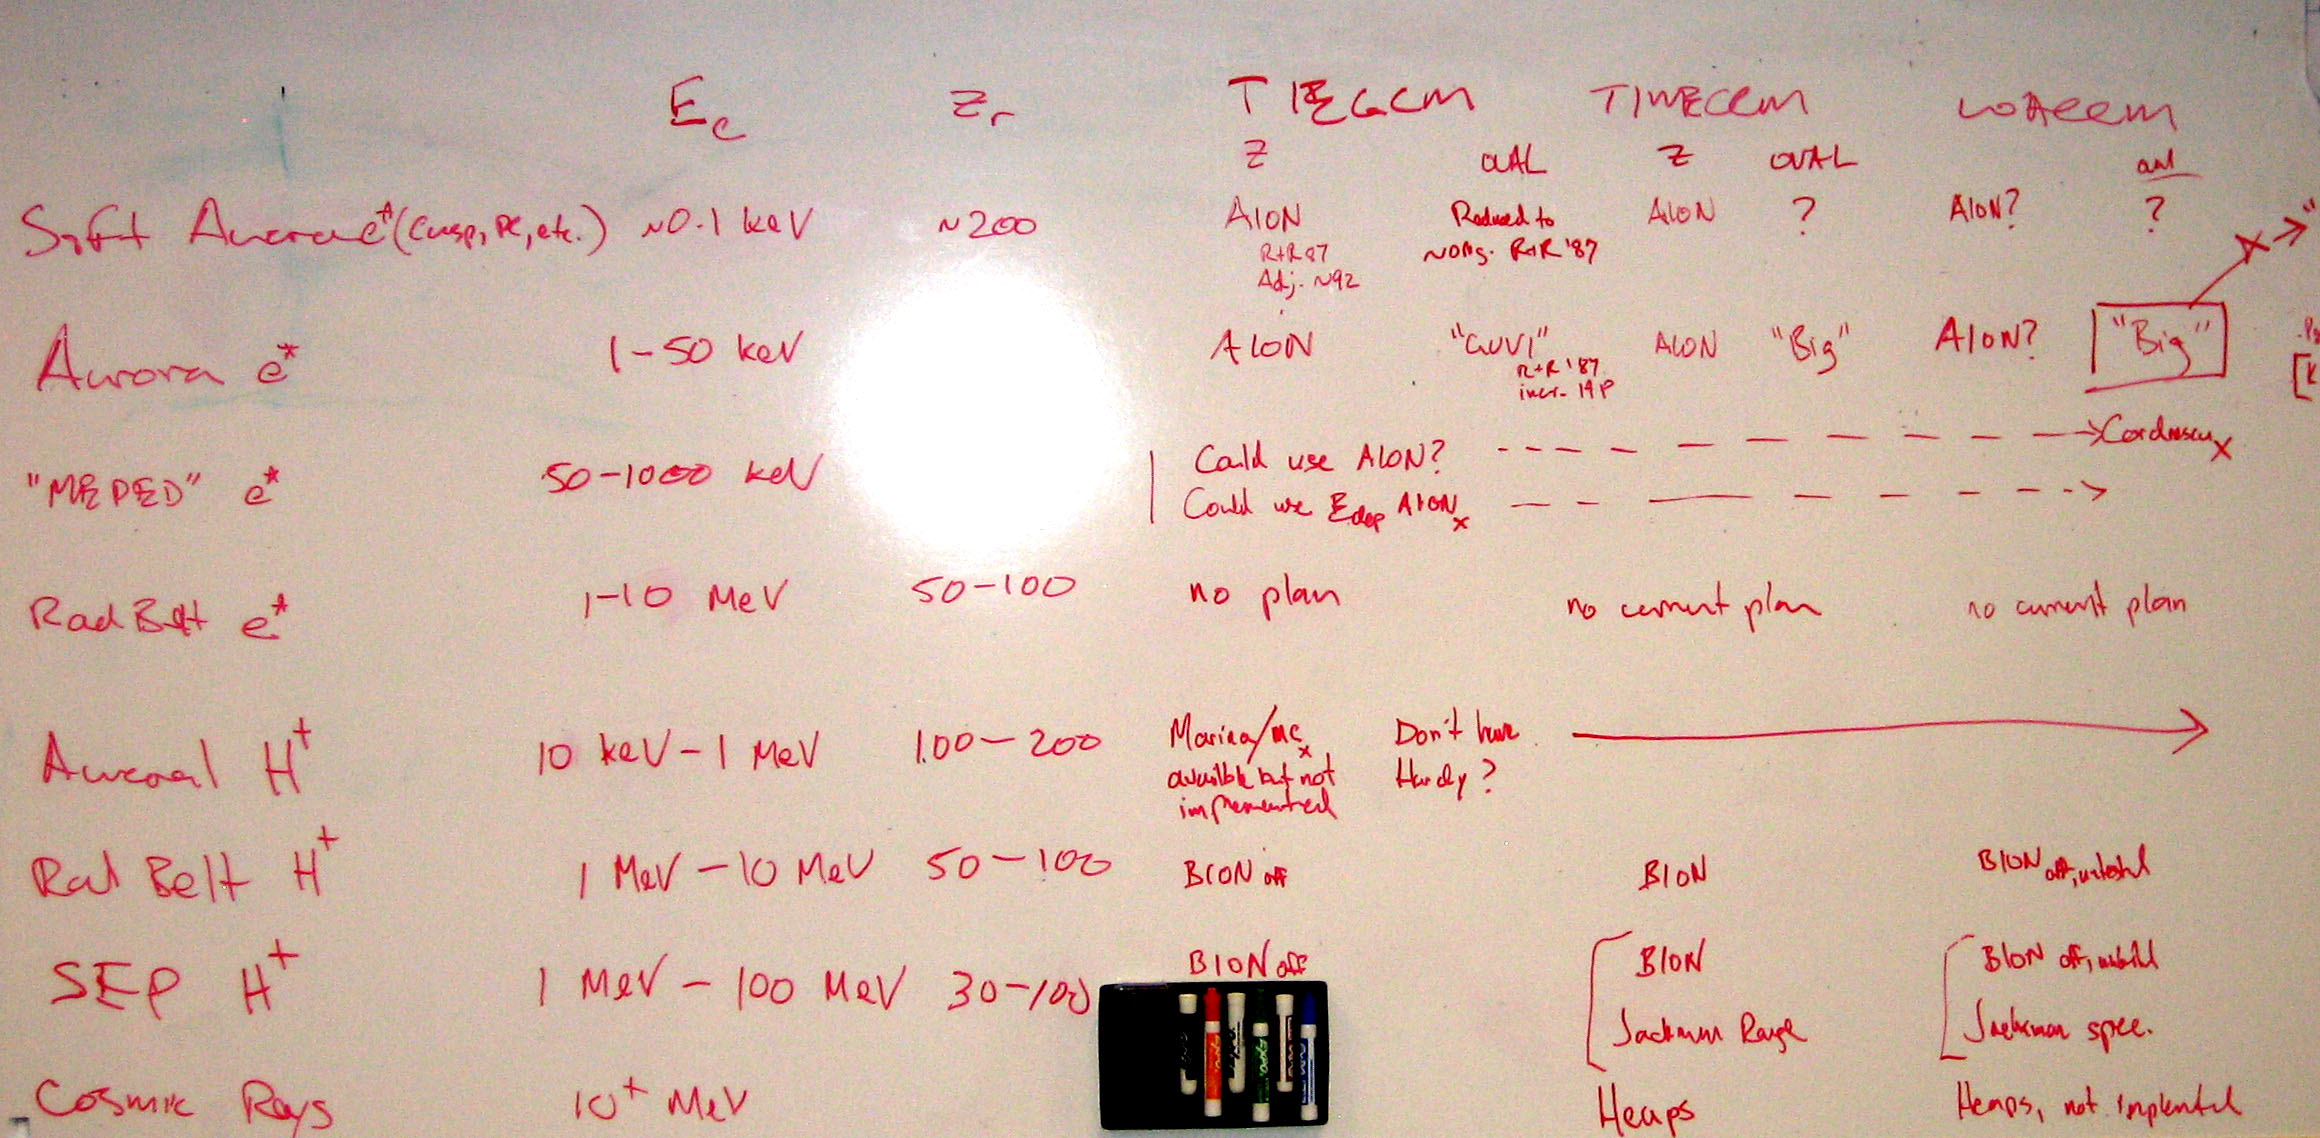 Ec Zr TIEGCM TIMEGCM WACCM
Z OVAL Z OVAL oval
Soft Aurora e* (Cusp, PC, etc.) ~0.1 keV ~200 AION Reduced to AION ? AION? ?
R+R 87 ~orig. R+R '87
Adj. ~92
Aurora e* 1-50 keV AION "GUVI" AION "Big" AION? "Big"
R+R '87
incr. HP
"MEPED" e* 50-1000 keV Could use AION?
Could use Edep AION x
Rad Belt e* 1-10 MeV 50-100 no plan no current plan no current plan
Auroral H+ 10 keV - 1 MeV 100-200 Marina/MC x Don't have
available but not Hardy?
implemented
Rad Belt H+ 1 MeV - 10 MeV 50-100 BION off BION BION off, untested
SEP H+ 1 MeV - 100 MeV 30-100 BION off BION BION off, untested
Jackman Range Jackman spec.
Cosmic Rays 10+ MeV Heaps Heaps, not implemented
EXPO